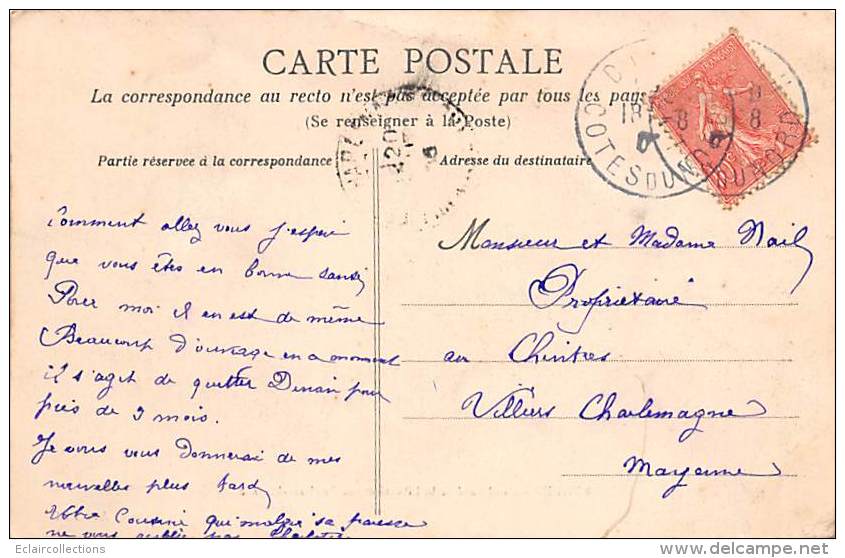 CARTE POSTALE
La correspondance au recto n'est pas acceptée par tous les pays
(Se renseigner à la Poste)
Partie réservée à la correspondance
Adresse du destinataire
COTES DU NORD
Comment allez vous j'espère
que vous êtes en bonne santé
Pour moi il en est de même
Beaucoup d'ouvrage en ce moment
il s'agit de quitter Dinan pour
près de 2 mois.
Je vous vous donnerai de mes
nouvelles plus tard
Votre Cousine qui malgré sa paresse
ne vous oublie pas
Monsieur et Madame Nail
Propriétaire
au Chintres
Villiers Charlemagne
Mayenne
Eclaircollections
www.delcampe.net